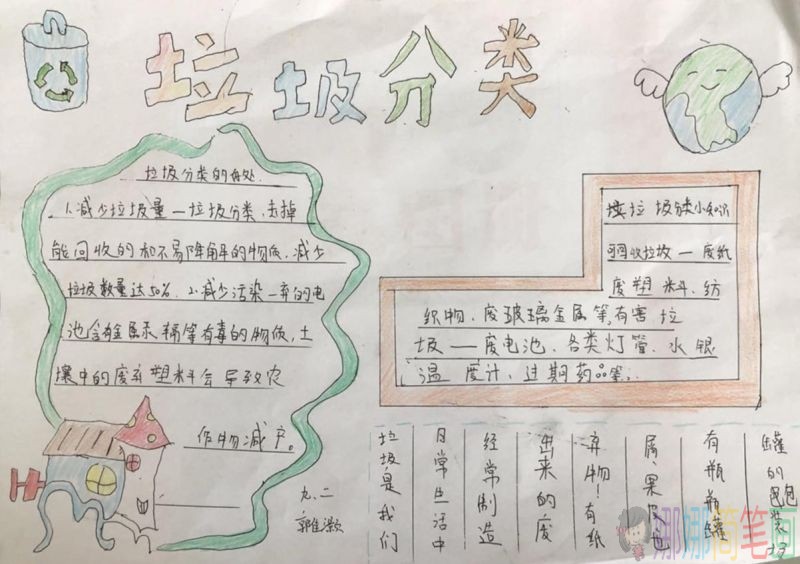 垃圾分类
垃圾分类的好处
1.减少垃圾量—垃圾分类,去掉
能回收的和不易降解的物质,减少
垃圾数量达50%. 2.减少污染—弃的电
池含有金属汞镉等有毒的物质,土
壤中的废弃塑料会导致农
作物减产。
九、二
垃圾分类小知识
可回收垃圾—废纸
废塑料、纺
织物、废玻璃金属等,有害垃
圾—废电池、各类灯管、水银
温度计、过期药品等..
垃圾是我们
日常生活中
经常制造
出来的废
弃物!有纸
属、果皮也
有瓶瓶罐
罐的包装
娜娜简笔画